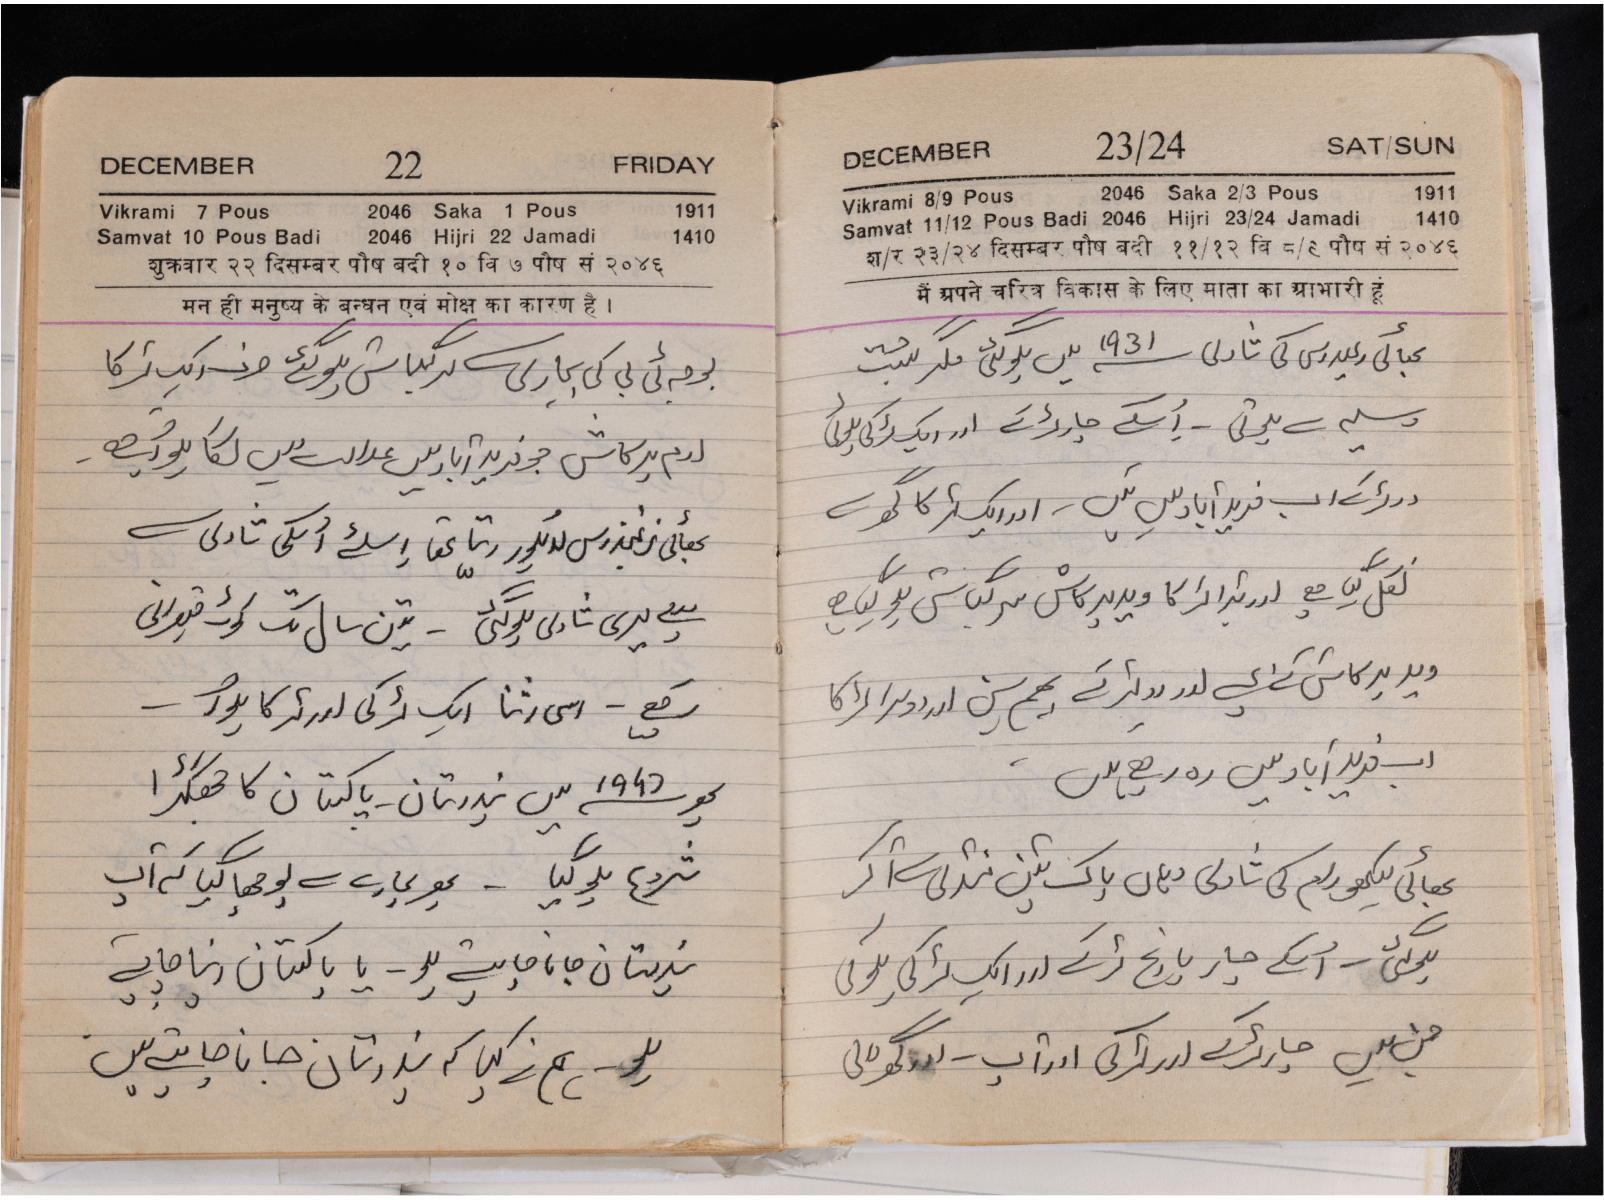 DECEMBER 22 FRIDAY
Vikrami 7 Pous 2046 Saka 1 Pous 1911
Samvat 10 Pous Badi 2046 Hijri 22 Jamadi 1410
शुक्रवार २२ दिसम्बर पौष बदी १० वि ७ पौष सं २०४६
मन ही मनुष्य के बन्धन एवं मोक्ष का कारण है ।
بوجہ ٹی بی کی بیماری سے سرگباش ہوگئے صرف ایک لڑکا
اوم پرکاش جو فریدآباد میں عدالت میں لگا ہوا ہے ۔
بھائی رہتا تھا اسلئے اُسکی شادی سے
پہلے میری شادی ہوگئی ۔ تین سال تک کوئٹہ
رہے ۔ اسی اثنا ایک لڑکی اور لڑکا ہوا ۔
پھر 1947 میں ہندوستان ۔ پاکستان کا جھگڑا
شروع ہوگیا ۔ پھر ہمارے سے پوچھا گیا کہ آپ
ہندوستان جانا چاہتے ہو ۔ یا پاکستان رہنا چاہتے
ہو ۔ ہم نے کہا کہ ہندوستان جانا چاہتے ہیں
DECEMBER 23/24 SAT/SUN
Vikrami 8/9 Pous 2046 Saka 2/3 Pous 1911
Samvat 11/12 Pous Badi 2046 Hijri 23/24 Jamadi 1410
श/र २३/२४ दिसम्बर पौष बदी ११/१२ वि ८/९ पौष सं २०४६
मैं अपने चरित्र विकास के लिए माता का आभारी हूं
بھائی کی شادی 1931 میں ہوگئی مگر بہت
وسیلہ سے ہوئی ۔ اُسکے چار لڑکے اور ایک لڑکی ہوئی
دو لڑکے اب فریدآباد میں ہیں ۔ اور ایک لڑکا گھر سے
نکل گیا ہے اور بڑا لڑکا وید پرکاش سرگباش ہوگیا ہے
وید پرکاش کے اور دو لڑکے ہیں اور دوسرا لڑکا
اب فریدآباد میں رہ رہے ہیں ۔
بھائی لیکھو رام کی شادی وہاں پاک پتن منڈی سے آ کر
ہوگئی ۔ اُسکے چار پانچ لڑکے اور ایک لڑکی ہوئی
جن میں چار لڑکے اور لڑکی اور آپ ۔ اور گھر والی